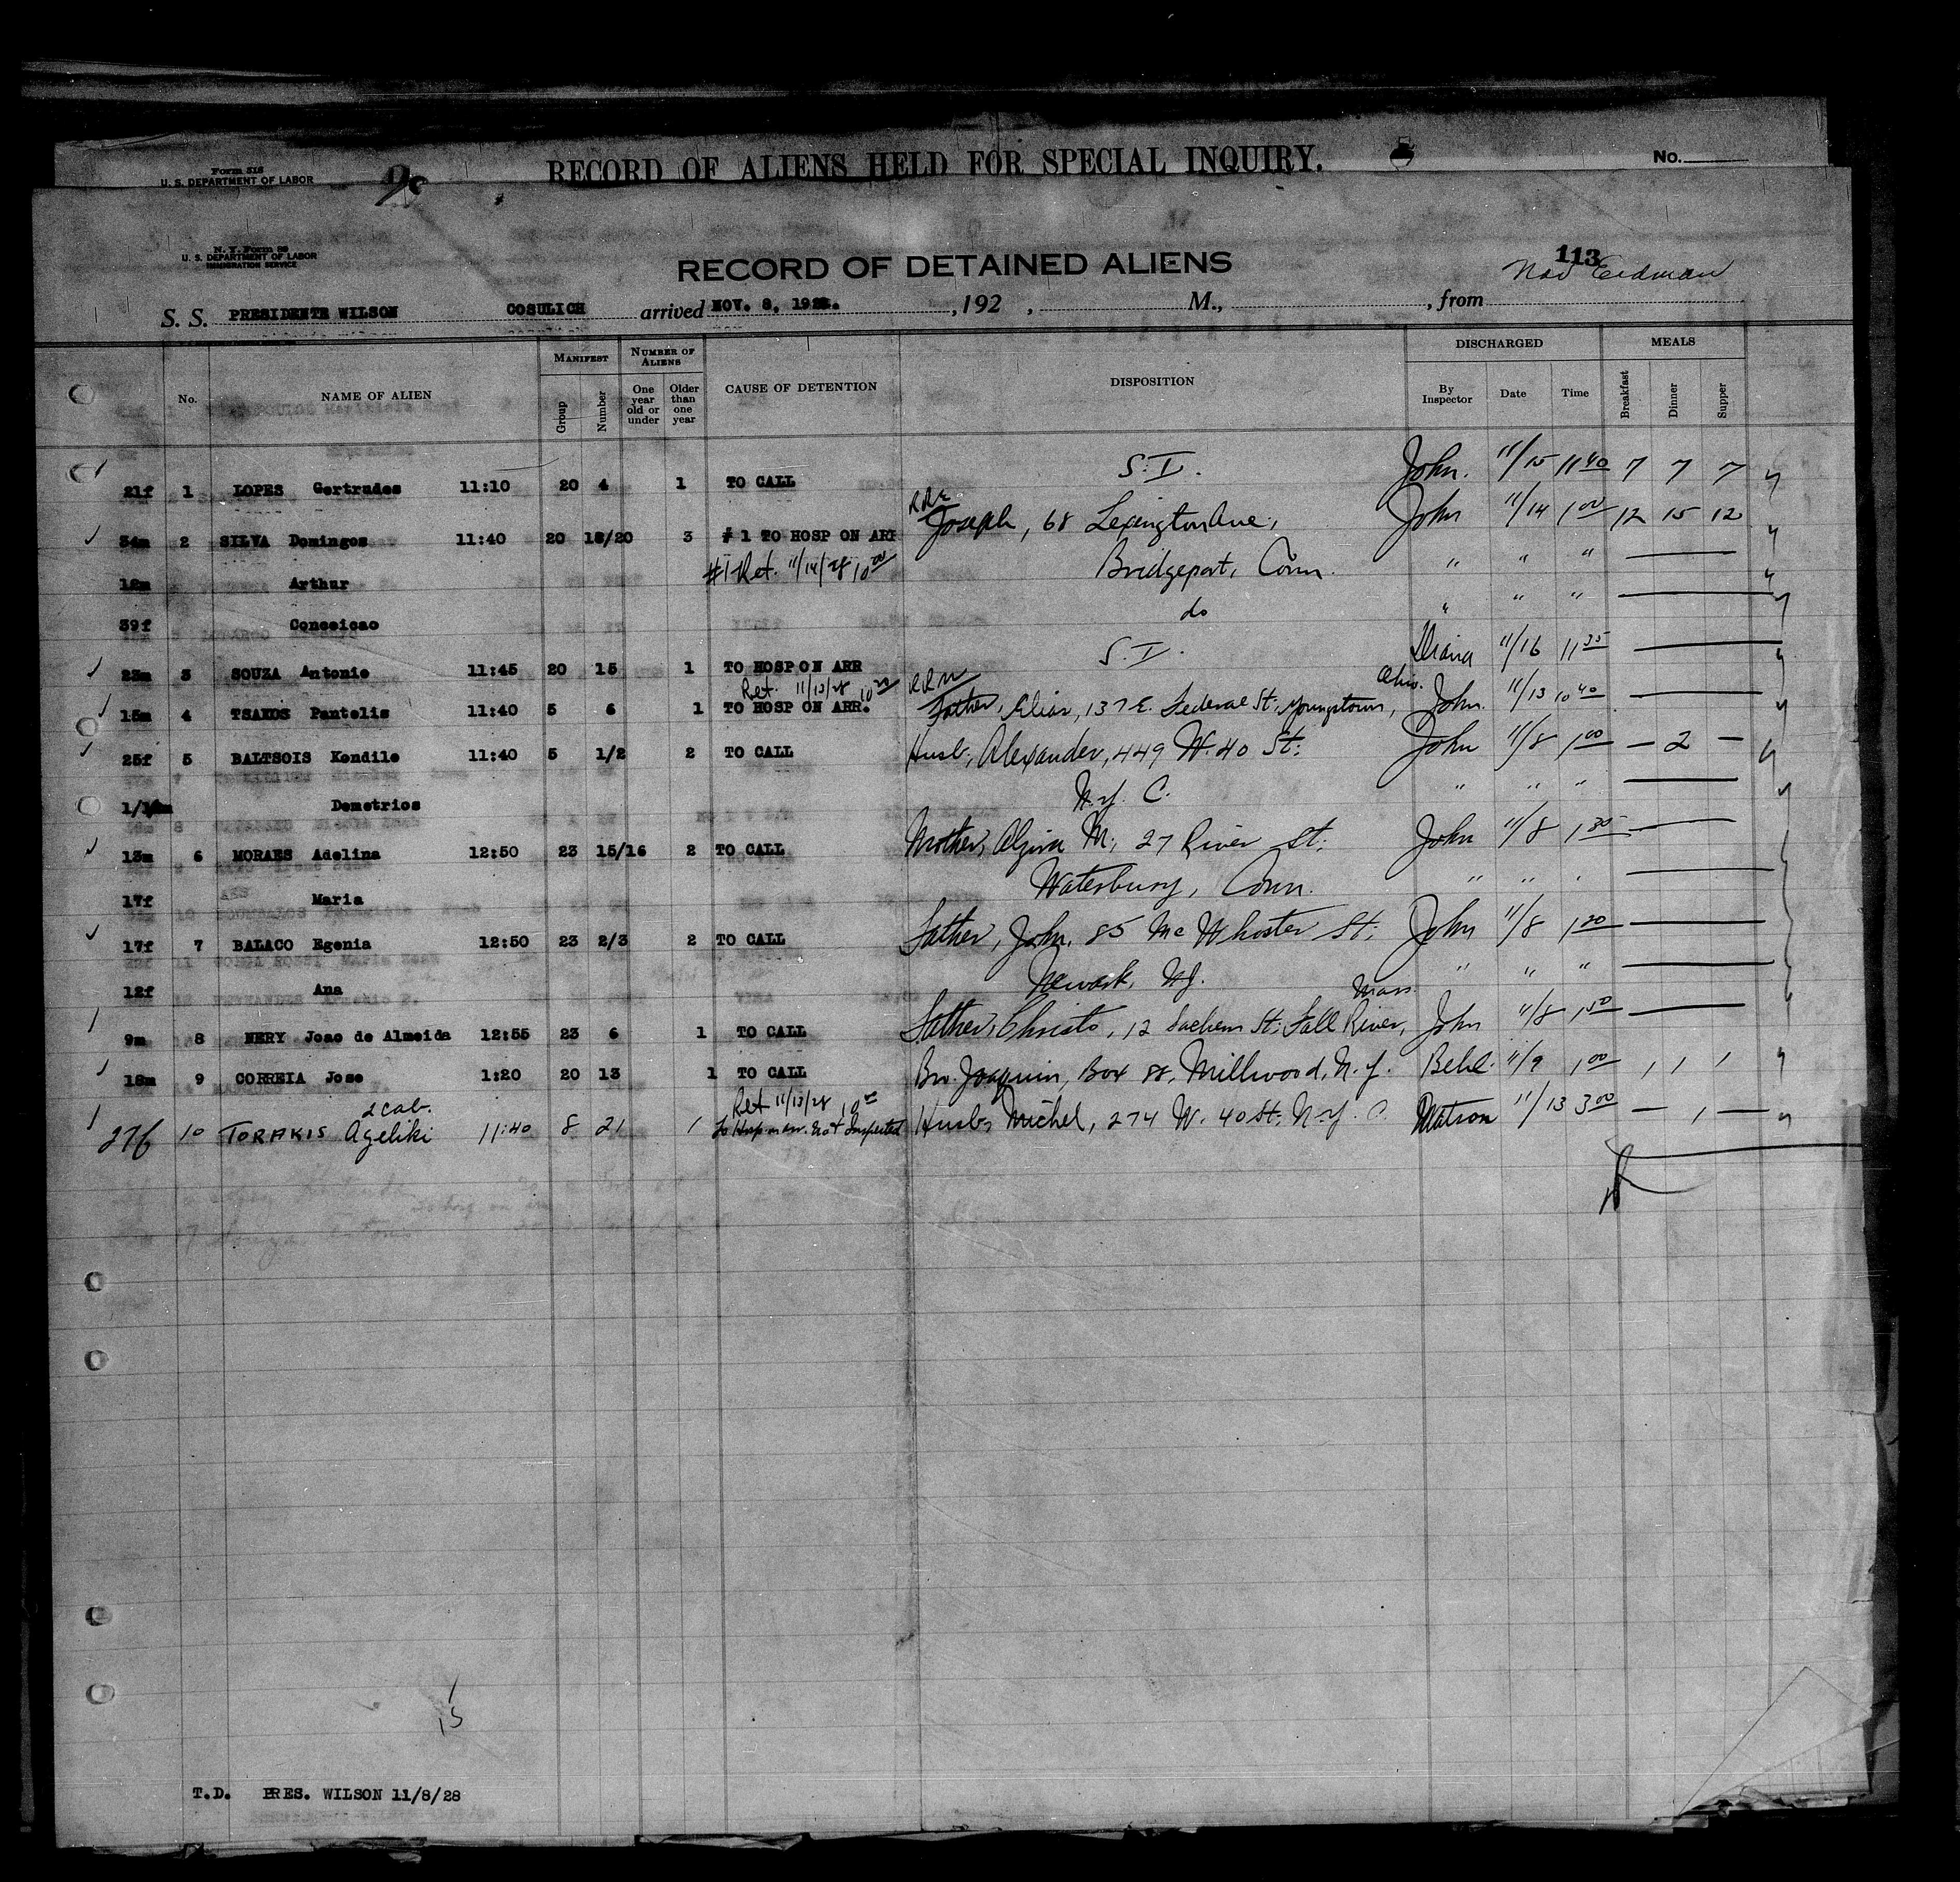 Form 518
U. S. DEPARTMENT OF LABOR
RECORD OF ALIENS HELD FOR SPECIAL INQUIRY.
No.
N. Y. Form 86
U. S. DEPARTMENT OF LABOR
IMMIGRATION SERVICE
RECORD OF DETAINED ALIENS
113
S. S. PRESIDENTE WILSON COSULICH arrived NOV. 8, 1928. , 192 , M., , from
No. NAME OF ALIEN MANIFEST Group Number NUMBER OF ALIENS One year old or under Older than one year CAUSE OF DETENTION DISPOSITION DISCHARGED By Inspector Date Time MEALS Breakfast Dinner Supper
21f 1 LOPES Gertrudes 11:10 20 4 1 TO CALL S. I. John. 11/15 11 40 7 7 7
34m 2 SILVA Domingos 11:40 20 18/20 3 # 1 TO HOSP ON ARR Joseph, 68 Lexington Ave, John 11/14 1 00 12 15 12
12m Arthur #1 Ret. 11/14/28 10 00 Bridgeport, Conn. " " "
39f Conceicao do " " "
23m 3 SOUZA Antonio 11:45 20 15 1 TO HOSP ON ARR S. I. 11/16 11 35
Ret. 11/13/28 10 20
15m 4 TSAKOS Pantelis 11:40 5 6 1 TO HOSP ON ARR. Father, Elias, 137 E. Federal St, Youngstown, Ohio. John. 11/13 10 40
25f 5 BALTSOIS Kondilo 11:40 5 1/2 2 TO CALL Husb, Alexander, 449 W. 40 St. John 11/8 1 00 — 2 —
Demetrios N. Y. C. " " "
13m 6 MORAES Adelina 12:50 23 15/16 2 TO CALL Mother, Alzira M, 27 River St. John 11/8 1 30
17f Maria Waterbury, Conn. " " "
17f 7 BALACO Egenia 12:50 23 2/3 2 TO CALL Father, John, 85 Mc Whorter St; John 11/8 1 20
12f Ana Newark, NJ. " " "
9m 8 NERY Joao de Almeida 12:55 23 6 1 TO CALL Father, Christo, 12 Sachem St; Fall River, Mass. John 11/8 1 50
18m 9 CORREIA Jose 1:20 20 13 1 TO CALL Bro. Joaquin, Box 88, Millwood, N. Y. 11/9 1 00 1 1 1
2 cab. Ret 11/13/28 10 00
27f 10 TORAKIS Ageliki 11:40 8 21 1 To Hosp on arr. Not Inspected Husb, Michel, 274 W. 40 St, N. Y. C. Watson 11/13 3 00 — 1 —
15
T.D. PRES. WILSON 11/8/28